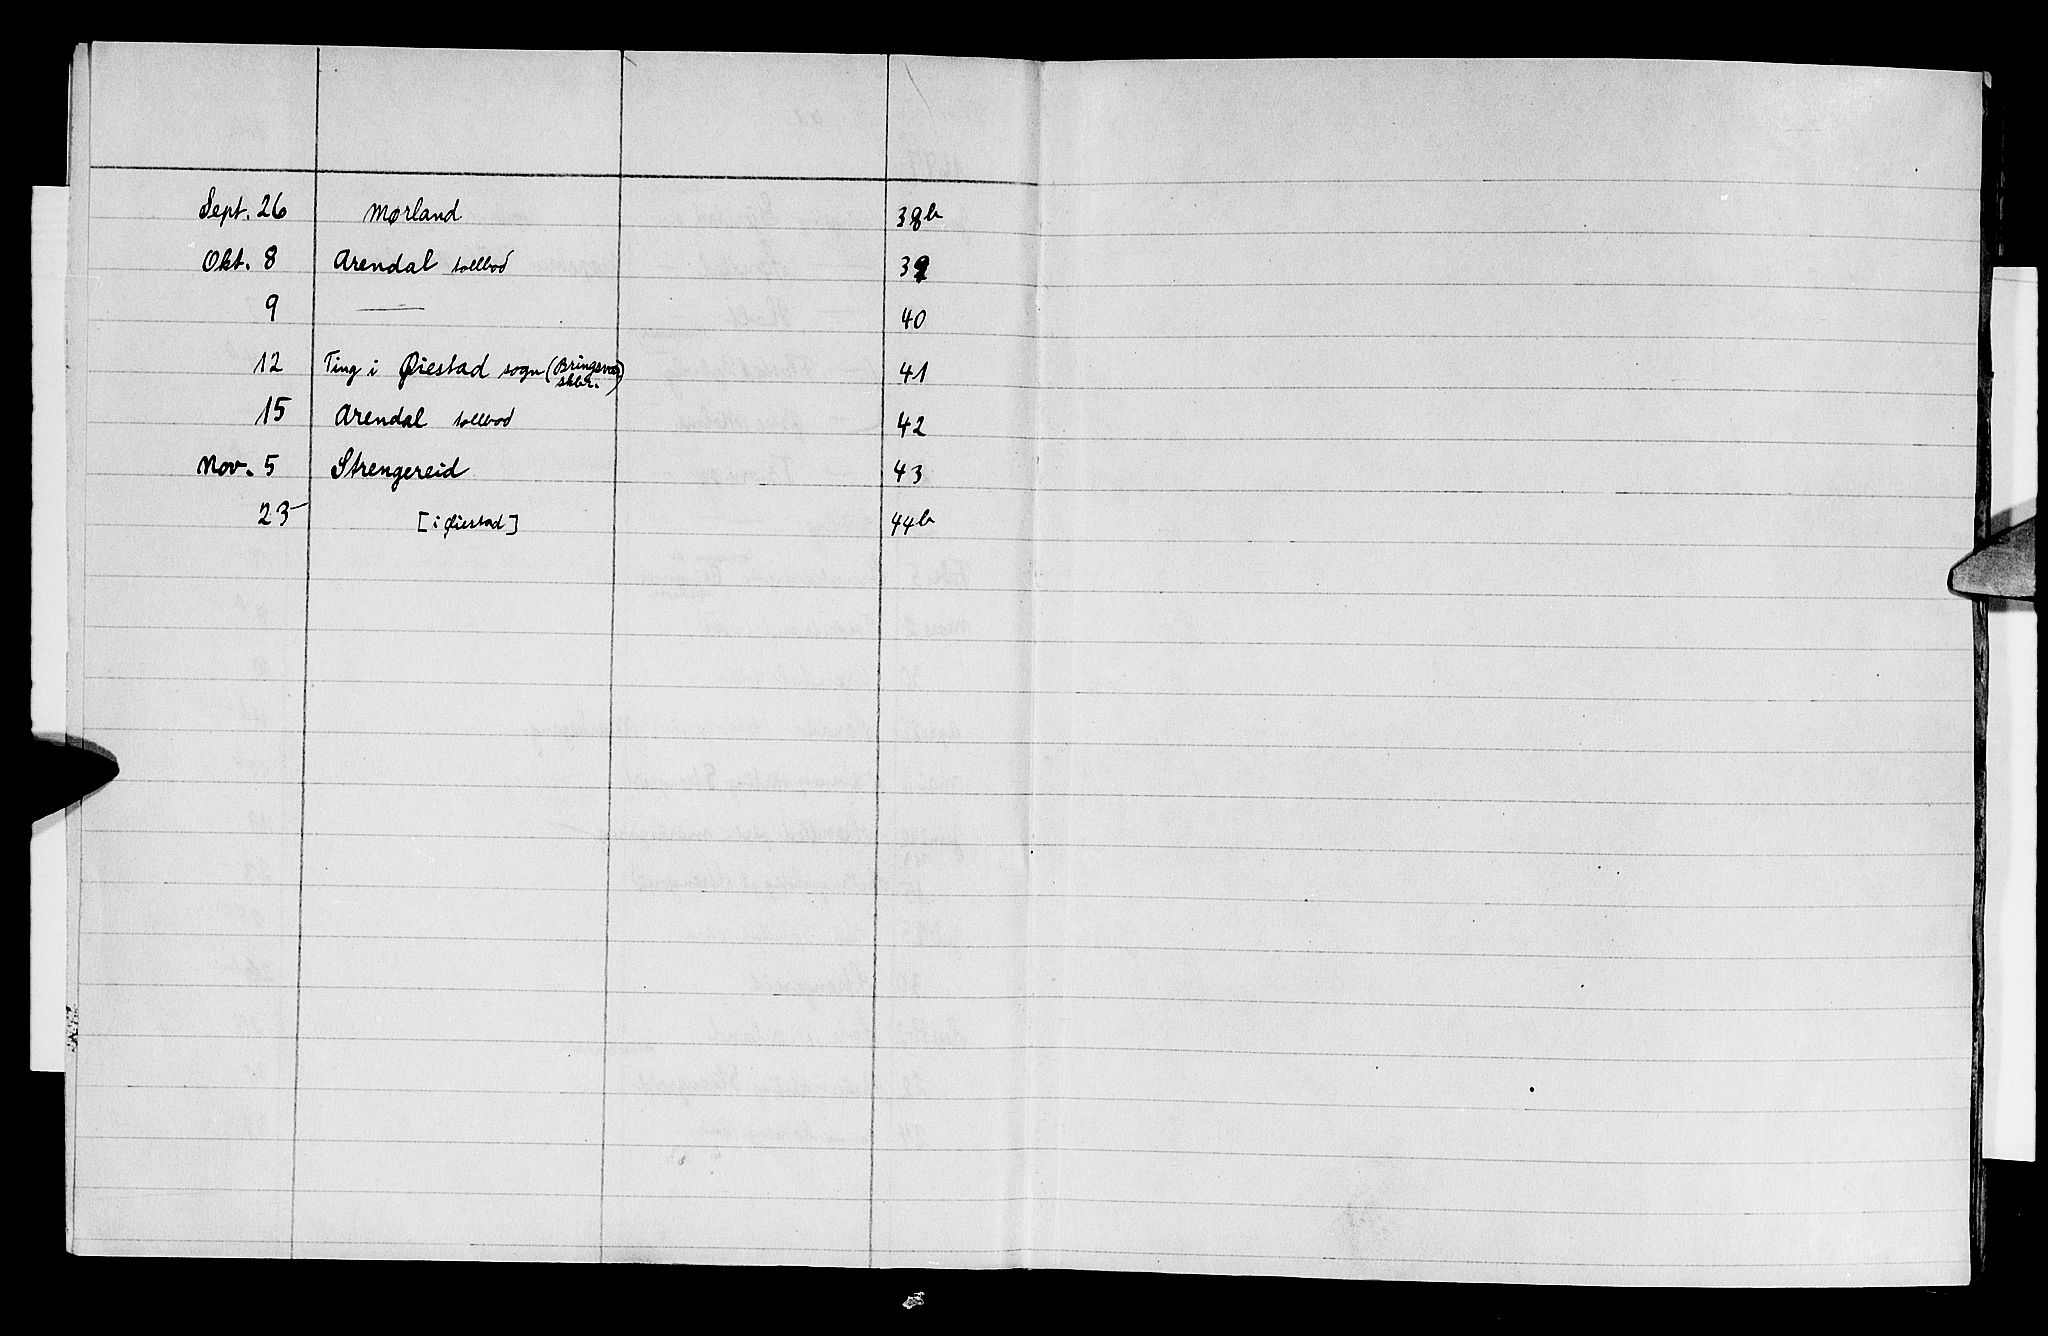 Sept. 26 Mørland 38b
Okt. 8 Arendal tollbod 39
9 — 40
12 Ting i Øiestad sogn (Bringsvær skbr.) 41
15 Arendal tollbod 42
Nov. 5 Strengereid 43
23 [i Øiestad] 44b